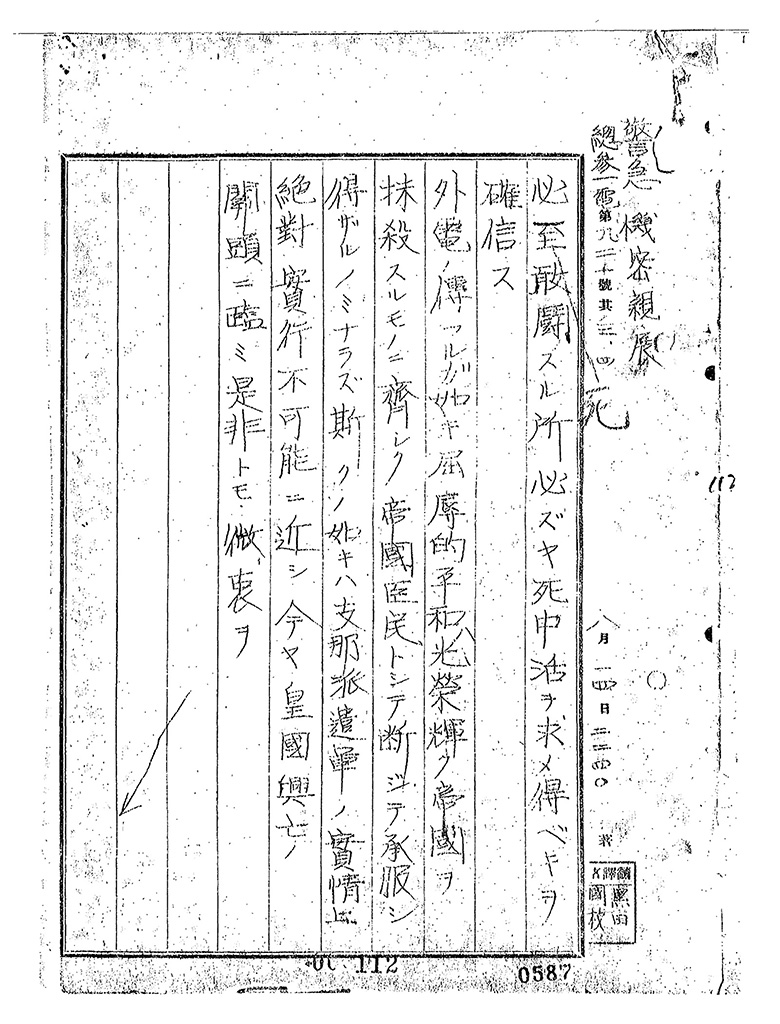 警急 機密親展
總參一電第九二十號其ノ三、四
死
八月一四日二二四〇 着
飜譯
國枝
必至敢鬪スル所必ズヤ死中活ヲ求メ得ベキヲ
確信ス
外電ノ傳フルガ如キ屈辱的平和ハ光榮輝ク帝國ヲ
抹殺スルモノニ齊シク帝國臣民トシテ斷ジテ承服シ
得ザルノミナラズ斯クノ如キハ支那派遣軍ノ實情上
絶對實行不可能ニ近シ今ヤ皇國興亡ノ
關頭ニ臨ミ是非トモ微衷ヲ
112
112
0587